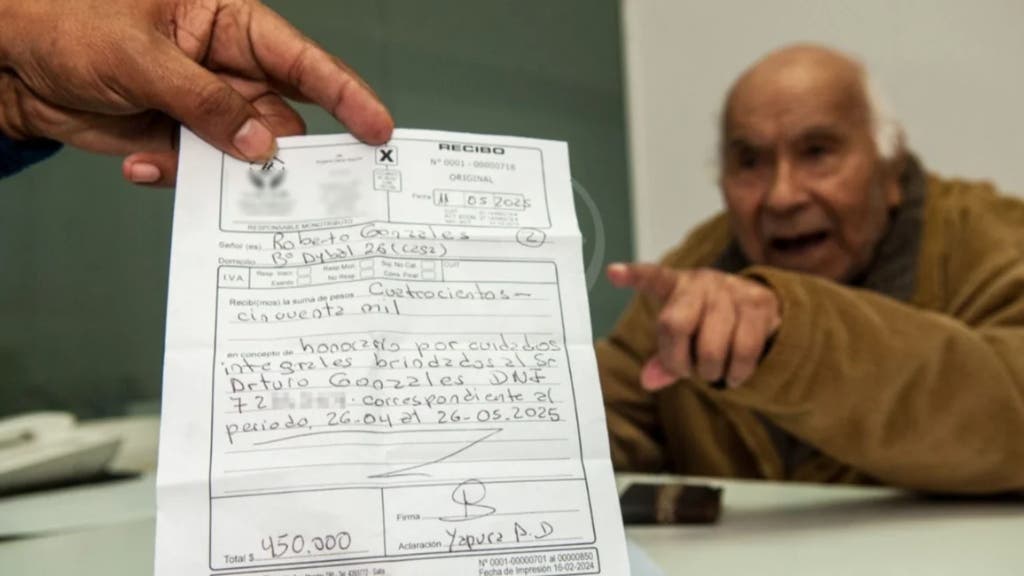 X
RECIBO
Nº 0001 - 00000716
ORIGINAL
Fecha 11 05 2025
RESPONSABLE MONOTRIBUTO
Señor (es) Roberto Gonzales 2
Domicilio Bº Dybal 26 (c292)
IVA Resp. Insc. Resp. Mon. Suj. No Cat. CUIT
Exento No Resp. Cons. Final
Recibí(mos) la suma de pesos Cuatrocientos -
cincuenta mil
en concepto de honorario por cuidados
integrales brindados al Sr
Arturo Gonzales DNI
72 correspondiente al
periodo, 26-04 al 26-05.2025
Firma
Total $ 450.000
Aclaración Yapura A.D
Nº 0001-00000701 al 00000850
Fecha de Impresión 16-02-2024